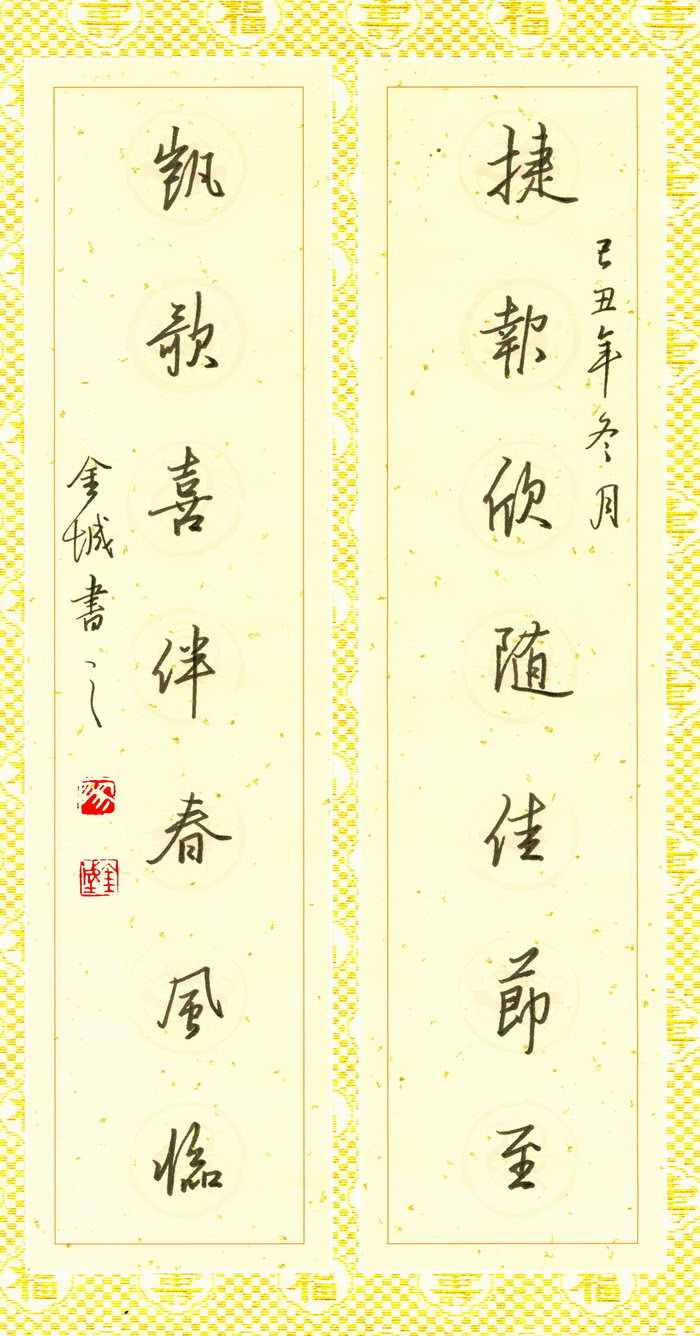 己丑年冬月
捷報欣随佳節至
凱歌喜伴春風臨
金城書之